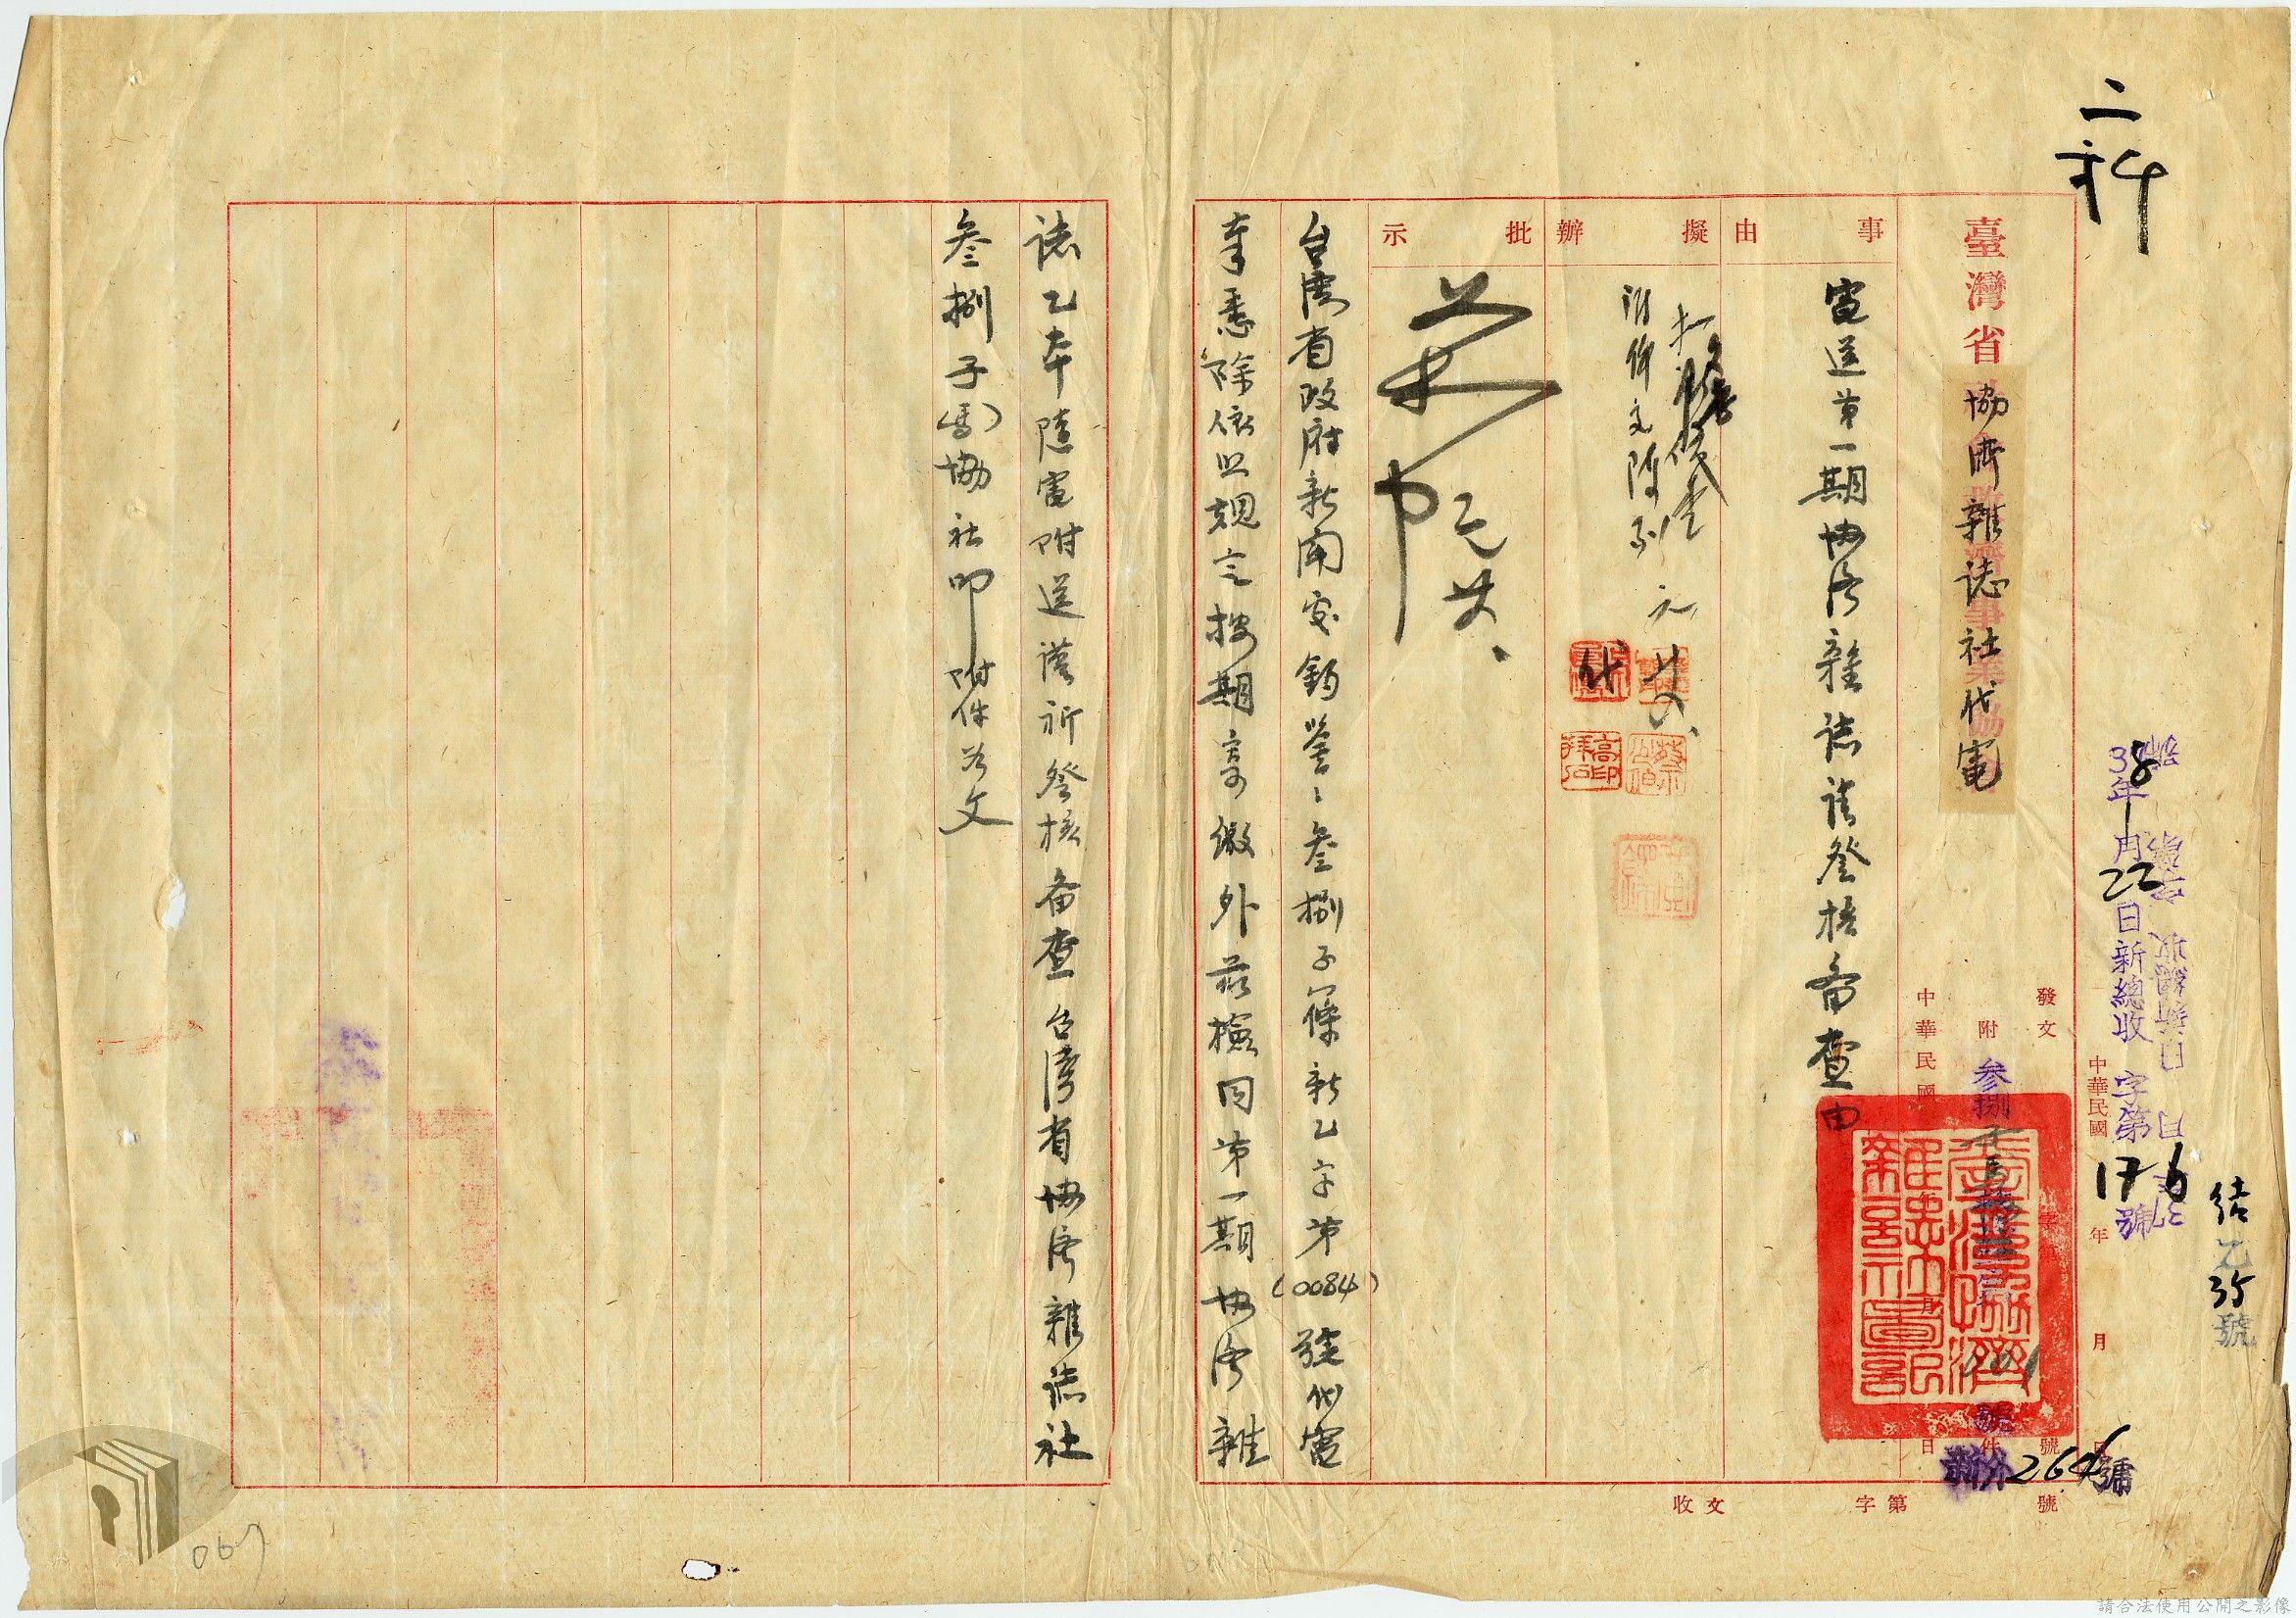 二科
臺灣省
協濟雜誌社代電
38年1月22日新總收字第176號
結乙35號
發文
附
參捌子馬協
號
件
中華民國
年
月
日
新分264號
事由
電送第一期協濟雜誌請詧核备查由
擬辦
代
元廿六
批示
茶
元廿
台灣省政府新聞处鈞鑒：叁捌子篠新乙字第(0084)號代電
奉悉除依照規定按期寄繳外茲檢同第一期协济雜
誌乙本隨電附送謹祈詧核备查台湾省协济雜誌社
叁捌子(馬)协社叩附件如文
收文
字第
號
067
請合法使用公開之影像